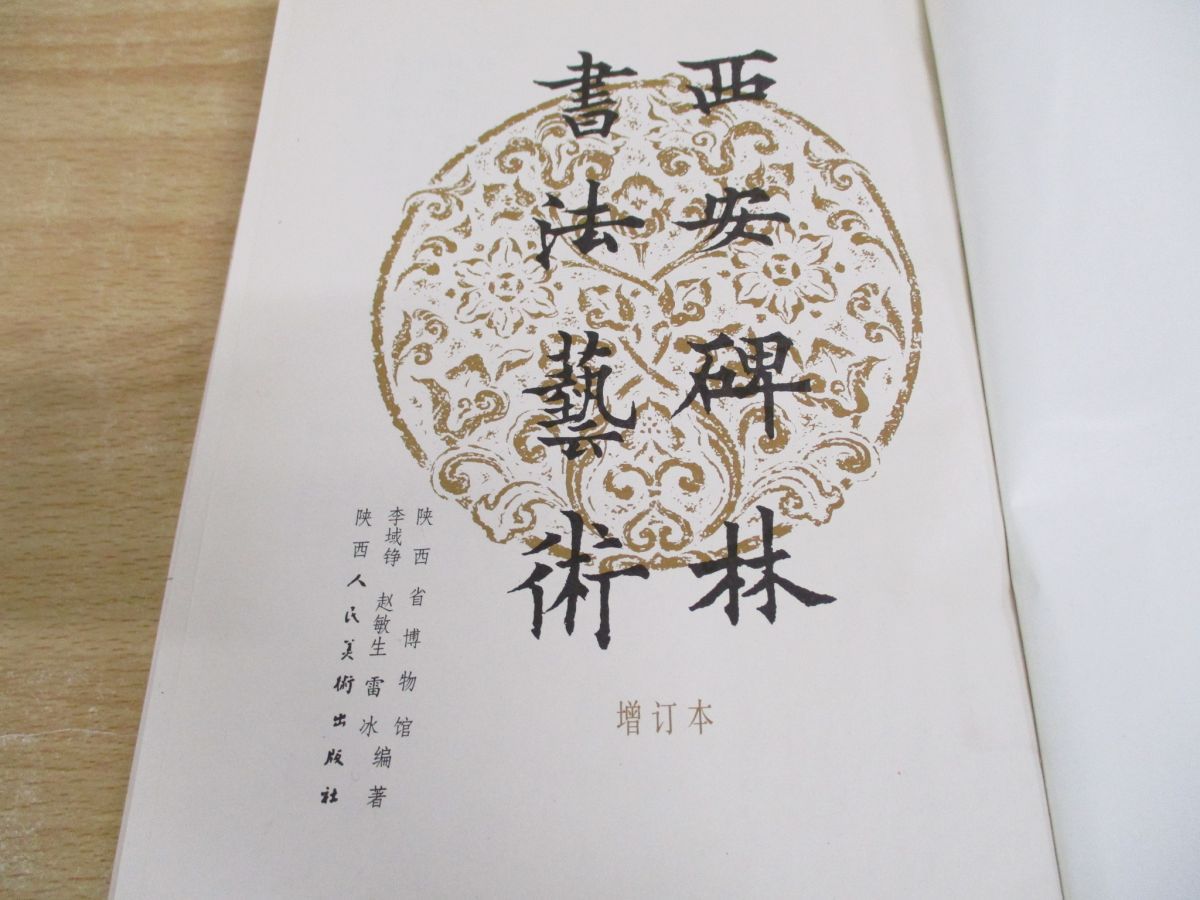 西安碑林
書法藝術
增订本
陕西省博物馆
李域铮 赵敏生 雷冰编著
陕西人民美術出版社